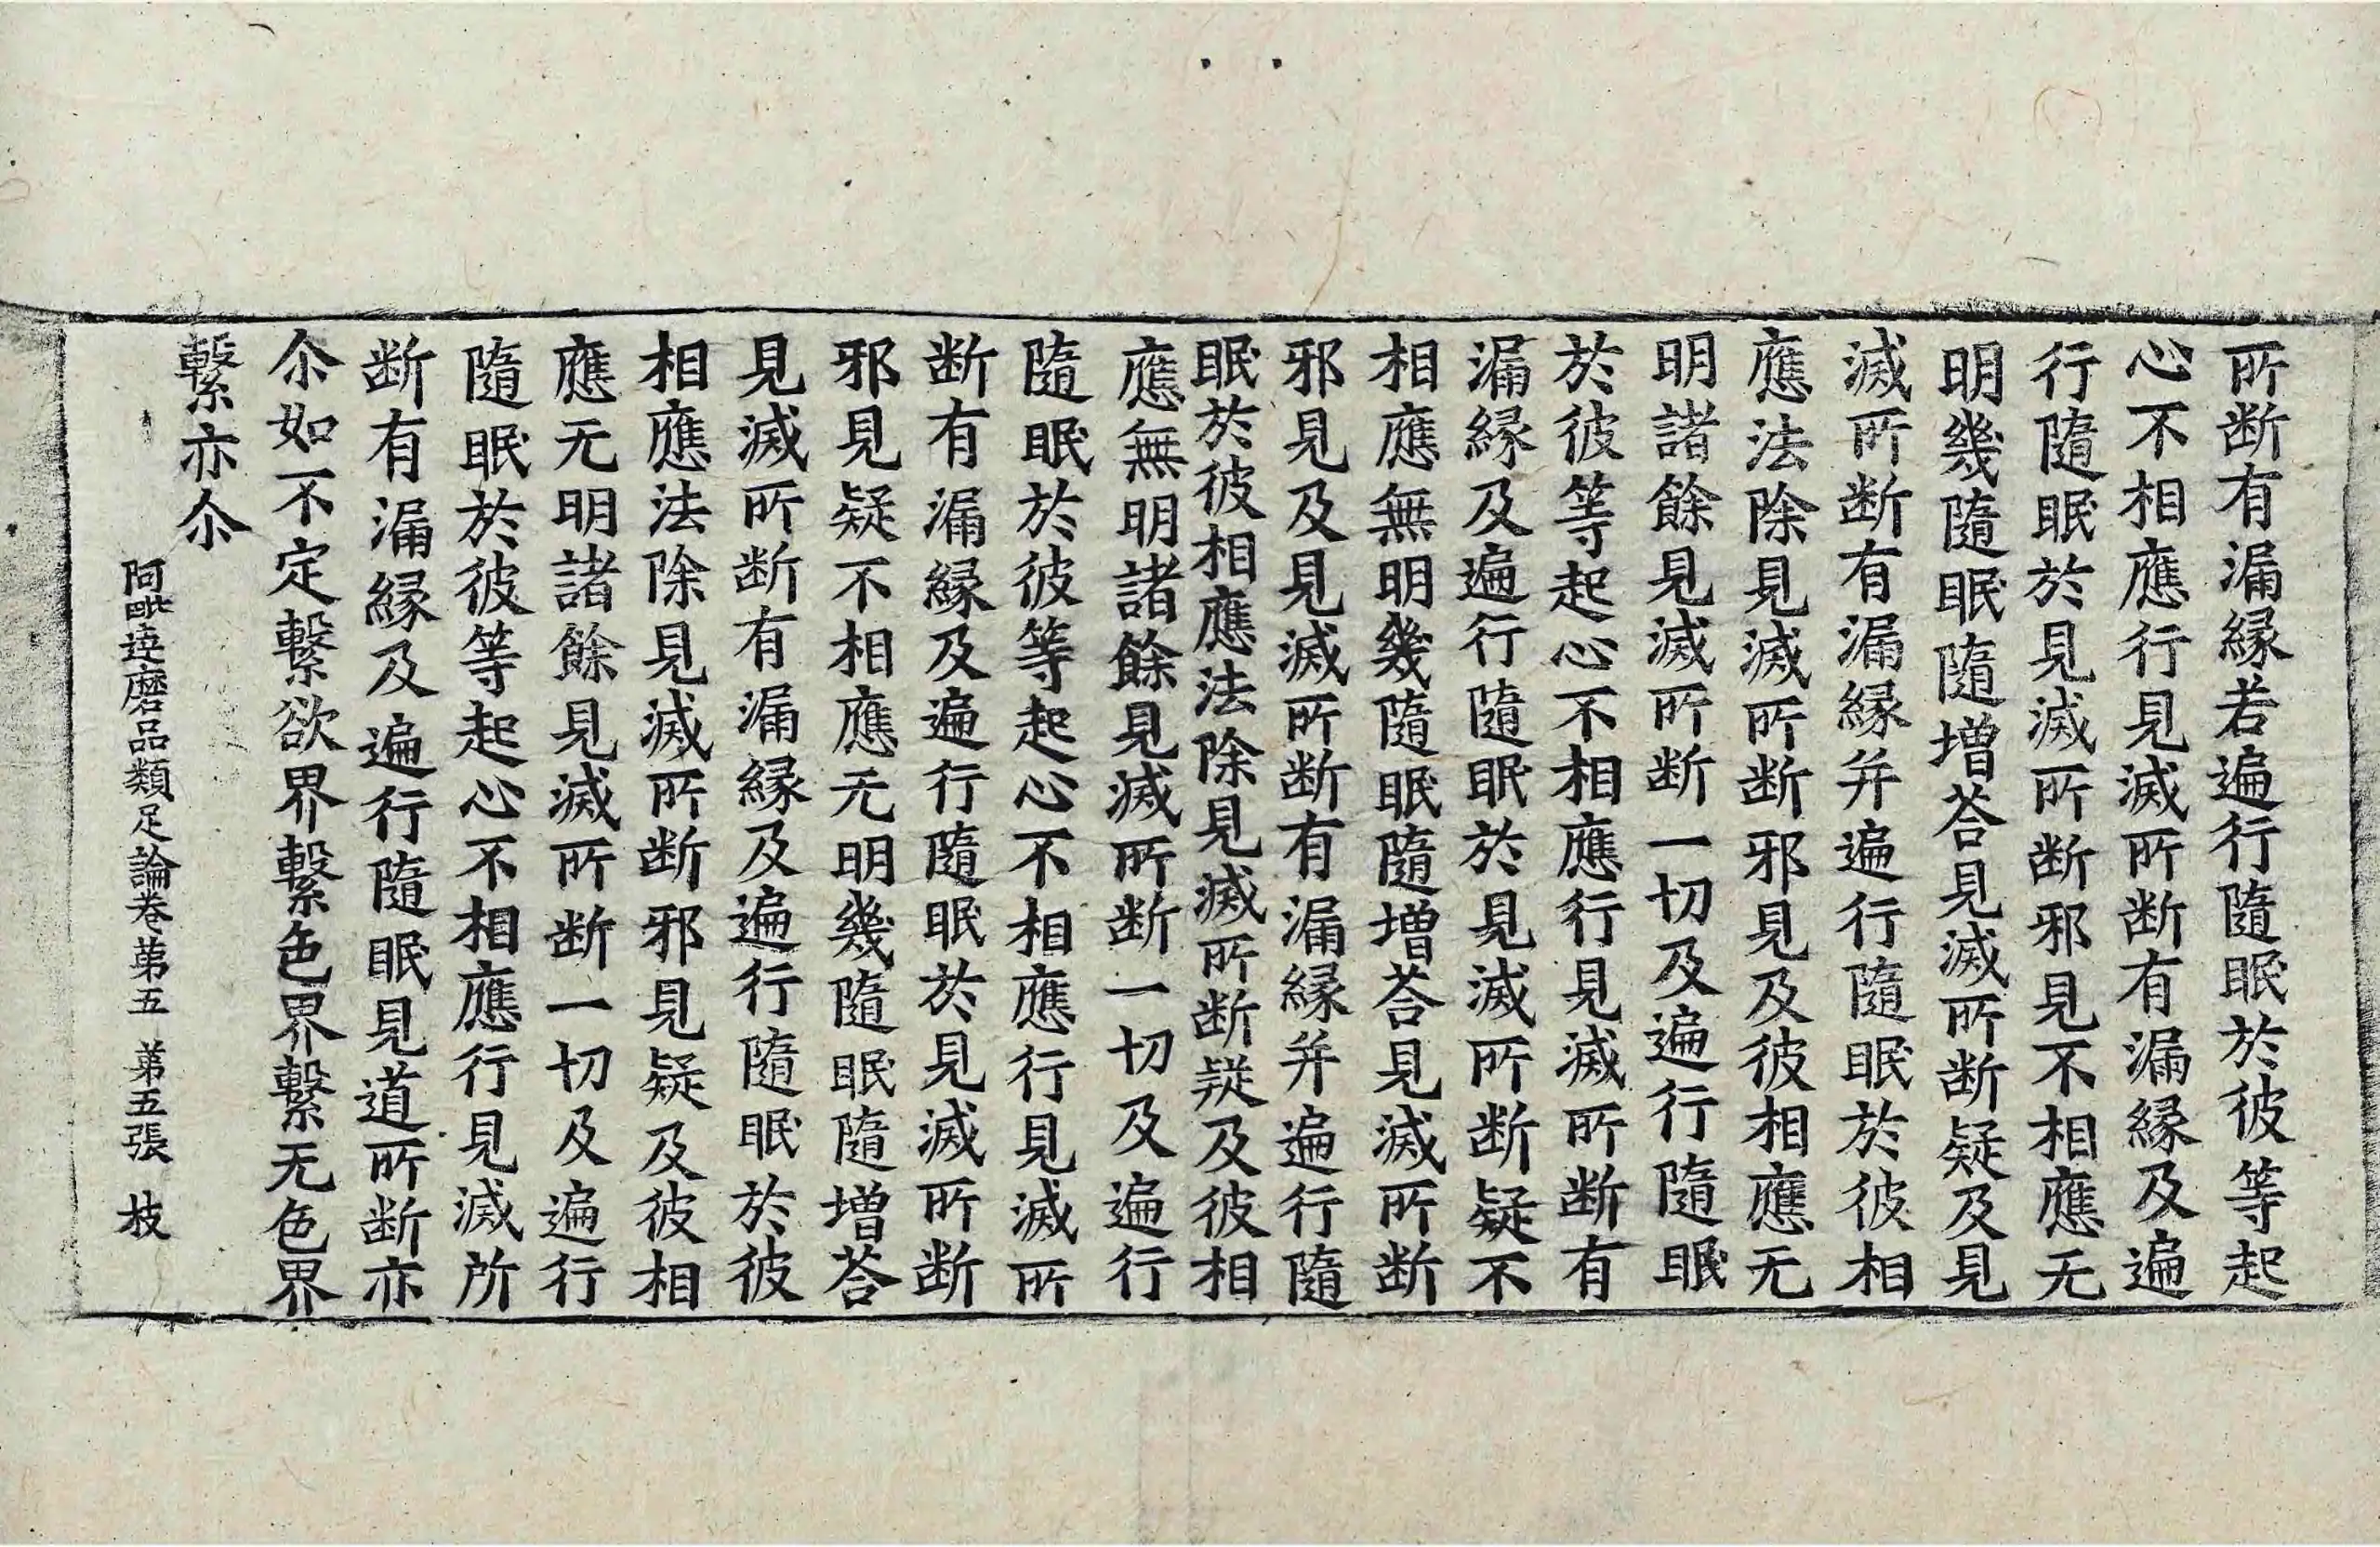 所断有漏縁若遍行隨眠於彼等起
心不相應行見滅所断有漏縁及遍
行隨眠於見滅所断邪見不相應无
明幾隨眠隨増荅見滅所断疑及見
滅所断有漏縁并遍行隨眠於彼相
應法除見滅所断邪見及彼相應无
明諸餘見滅所断一切及遍行隨眠
於彼等起心不相應行見滅所断有
漏縁及遍行隨眠於見滅所断疑不
相應無明幾隨眠隨増荅見滅所断
邪見及見滅所断有漏縁并遍行隨
眠於彼相應法除見滅所断疑及彼相
應無明諸餘見滅所断一切及遍行
隨眠於彼等起心不相應行見滅所
断有漏縁及遍行隨眠於見滅所断
邪見疑不相應无明幾隨眠隨増荅
見滅所断有漏縁及遍行隨眠於彼
相應法除見滅所断邪見疑及彼相
應无明諸餘見滅所断一切及遍行
隨眠於彼等起心不相應行見滅所
断有漏縁及遍行隨眠見道所断亦
尒如不定繫欲界繫色界繫无色界
繫亦尒
阿毗達磨品類足論卷苐五 苐五張 枝